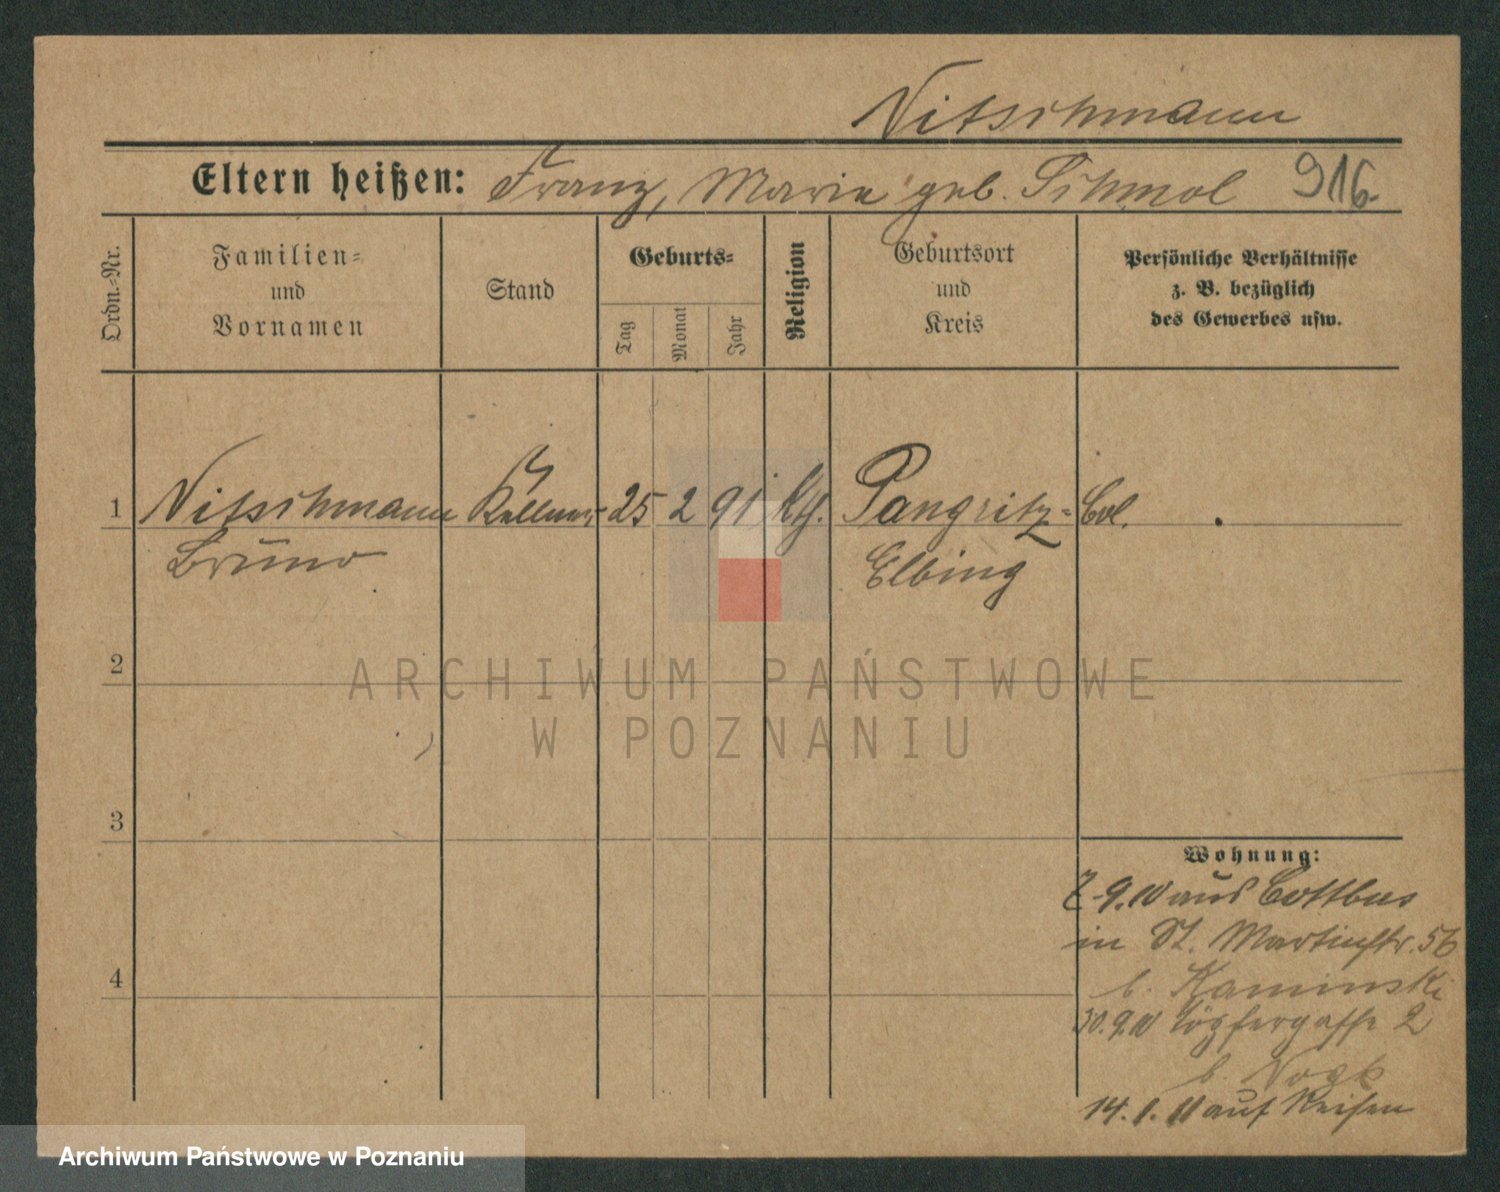 Nitschmann
Eltern heißen: Franz, Marie geb. Schmol 916.
Ordn.-Nr.
Familien-
und
Vornamen
Stand
Geburts-
Tag
Monat
Jahr
Religion
Geburtsort
und
Kreis
Persönliche Verhältnisse
z. B. bezüglich
des Gewerbes usw.
1 Nitschmann Kellner 25 2 91 kth. Pangritz- Col.
Bruno Elbing
2
ARCHIWUM PAŃSTWOWE
W POZNANIU
3
Wohnung:
7.9.10 aus Cottbus
in St. Martinstr. 56
4
b. Kaminski
30.9.10 Töpfergasse 2
b. Vogt
14.1.11 auf Reisen
Archiwum Państwowe w Poznaniu